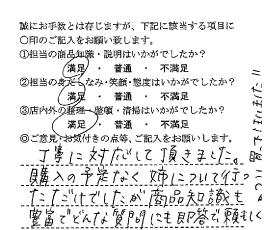 誠にお手数とは存じますが、下記に該当する項目に
○印のご記入をお願い致します。
①担当の商品知識・説明はいかがでしたか?
満足 ・ 普通 ・ 不満足
②担当の身だしなみ・笑顔・態度はいかがでしたか?
満足 ・ 普通 ・ 不満足
③店内外の整理・整頓・清掃はいかがでしたか?
満足 ・ 普通 ・ 不満足
◎ご意見・お気付きの点等、ご記入をお願いします。
丁寧に対応して頂きました。
購入の予定なく姉について行っ
ただけでしたが商品知識も
豊富でどんな質問にも即答で頼もしく